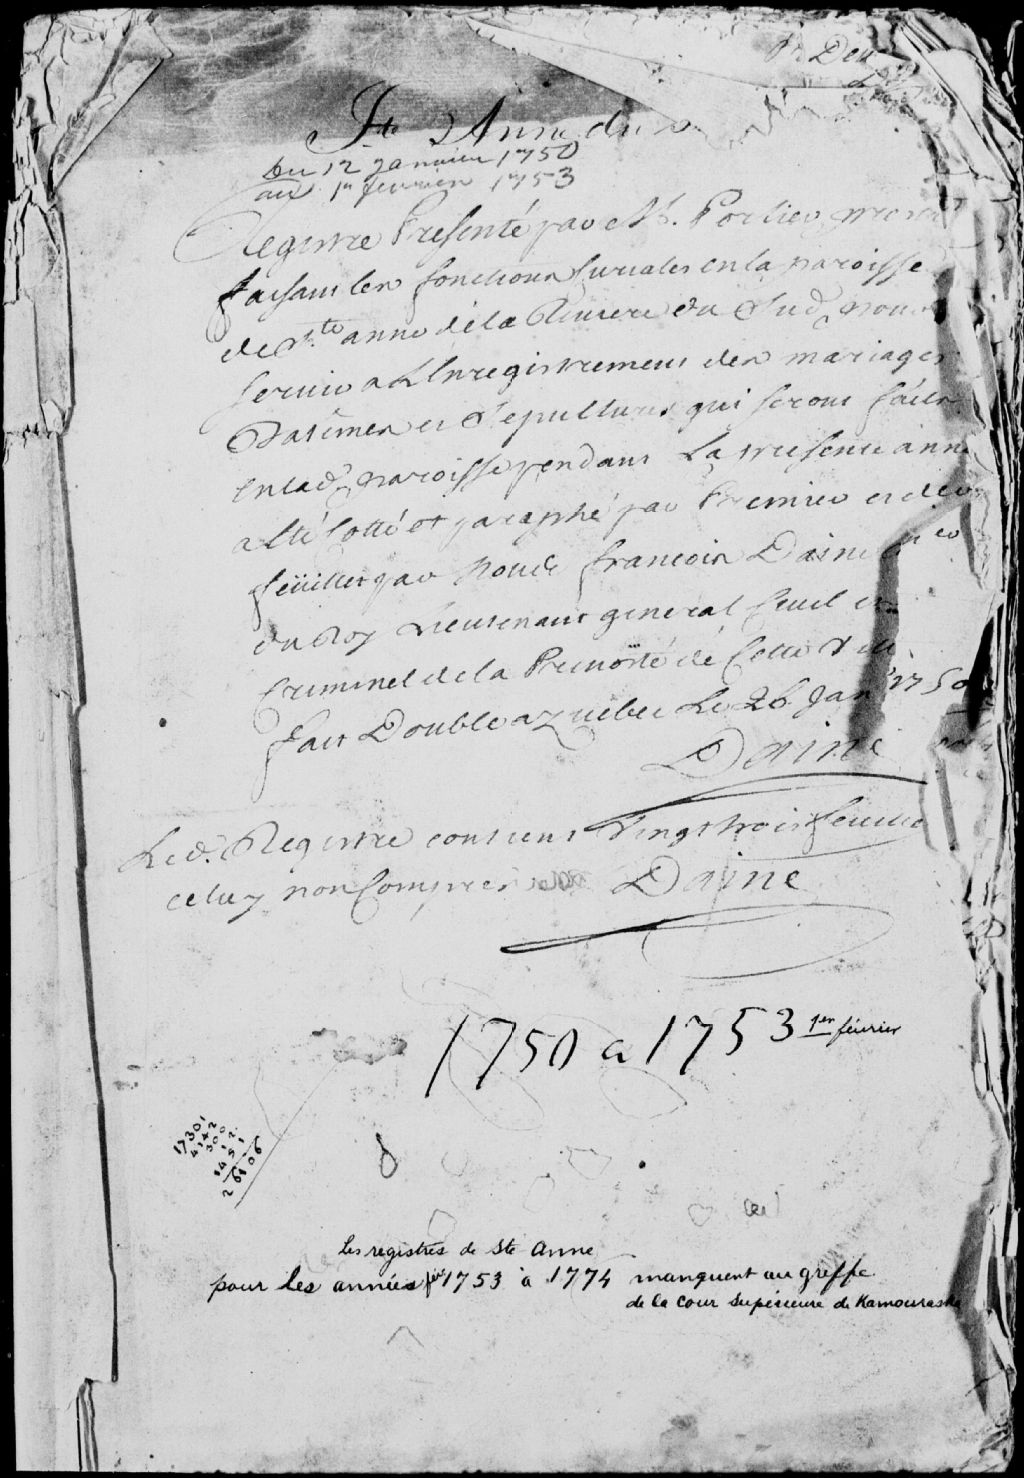 Ste Anne du
Du 12 Janvier 1750
au 1er fevrier 1753
Registre Presenté par Mr. Porlier
faisant les fonctions Curiales en la paroisse
de Ste anne de la Riviere du Sud, pour
servir a L'Enregistrement des mariages
Batêmes et Sepultures qui seront faits
en lad. paroisse pendant La presente année
a Eté Cotté et paraphé par Premier et der
feüillet par Nous françois Daine Coner
du Roy Lieutenant general Civil et
Criminel de la Prevosté de Cette Ville
fait Double a quebec Le 26 Janr 1750
Daine
Led. Registre contient Vingt trois feuillets
celuy non Compris Daine
1750 a 1753 1er février
17301
4142
300
1452
Les registres de Ste Anne
pour les années 1753 à 1774 manquent au greffe
de la Cour Supérieure de Kamouraska